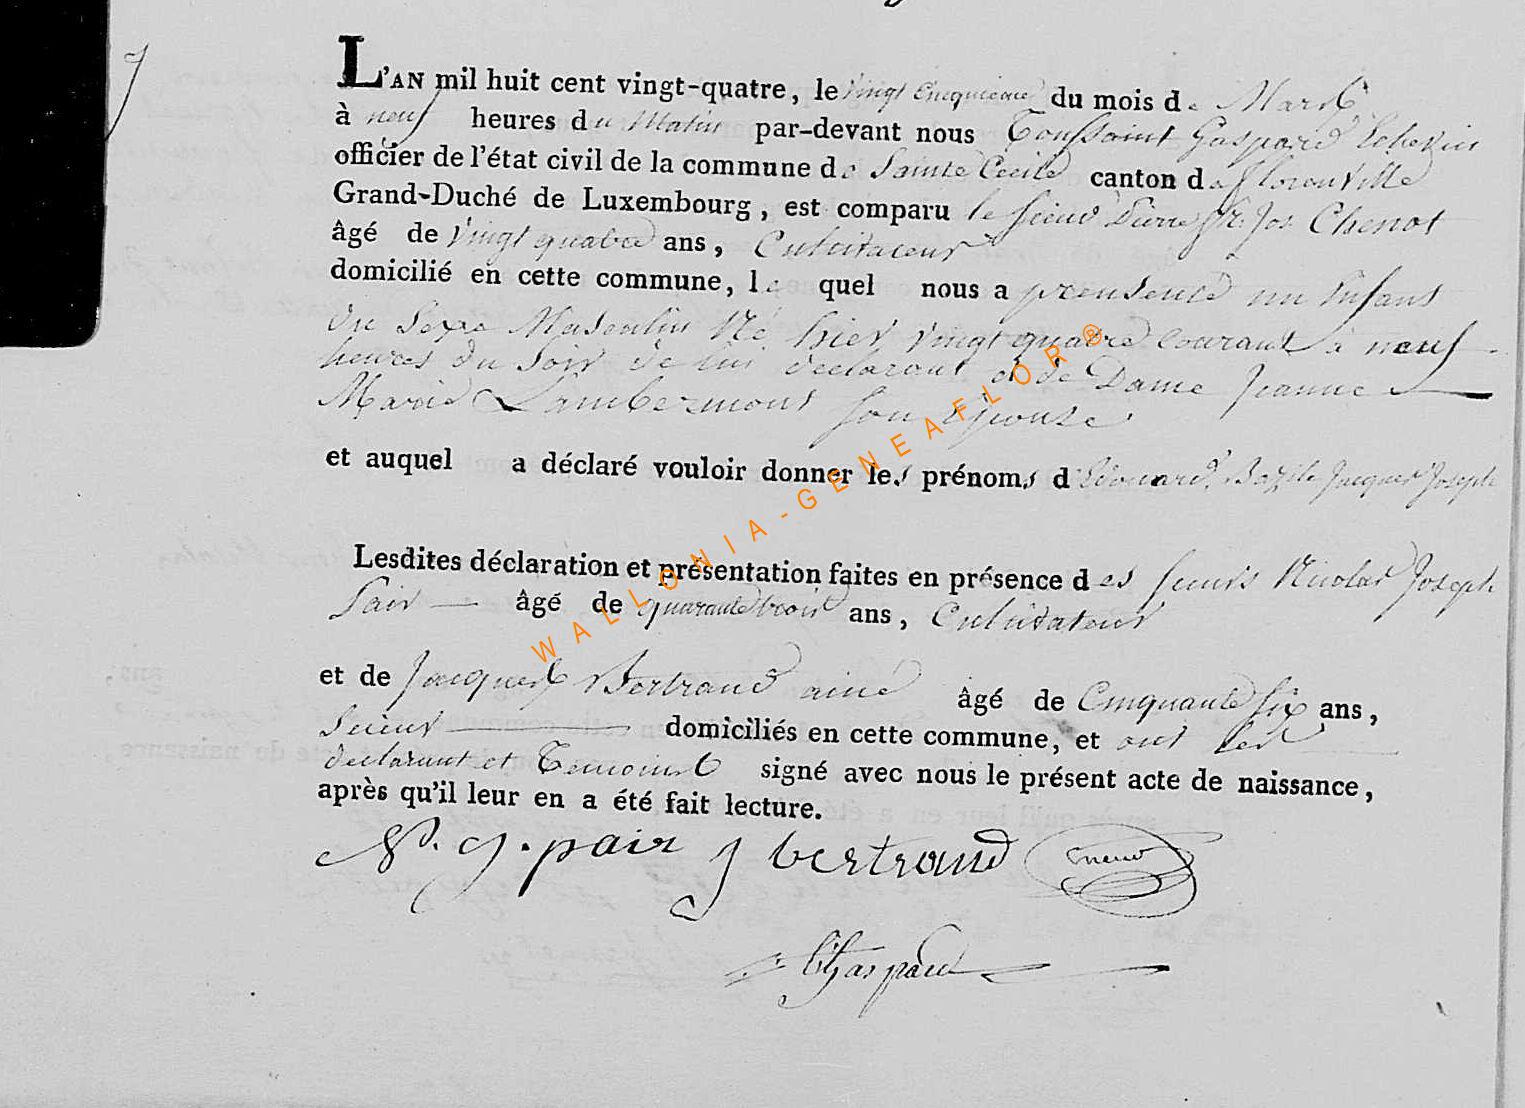 7
L'AN mil huit cent vingt-quatre, le vingt Cinquieme du mois de Mars
à neuf heures du Matin par-devant nous Toussaint Gaspard Echevin
officier de l'état civil de la commune de Sainte Cecile canton de florenville
Grand-Duché de Luxembourg, est comparu le sieur Pierre Jos. Chenot
âgé de Vingt quatre ans, Cultivateur
domicilié en cette commune, le quel nous a presenté un Enfant
du Sexe Masculin Né hier vingt quatre courant à neuf
heures du Soir de lui déclarant et de Dame Jeanne
Marie Lambermont son Epouse
et auquel a déclaré vouloir donner les prénoms d'Edouard Bazile Jacques Joseph
Lesdites déclaration et présentation faites en présence des sieurs Nicolas Joseph
Pair âgé de quarante trois ans, Cultivateur
et de Jacques Bertrand ainé âgé de Cinquante six ans,
domiciliés en cette commune, et ont les
declarant et Temoins signé avec nous le présent acte de naissance,
après qu'il leur en a été fait lecture.
N. J. pair J bertrand
Gaspard
WALLONIA-GENEAFLOR®